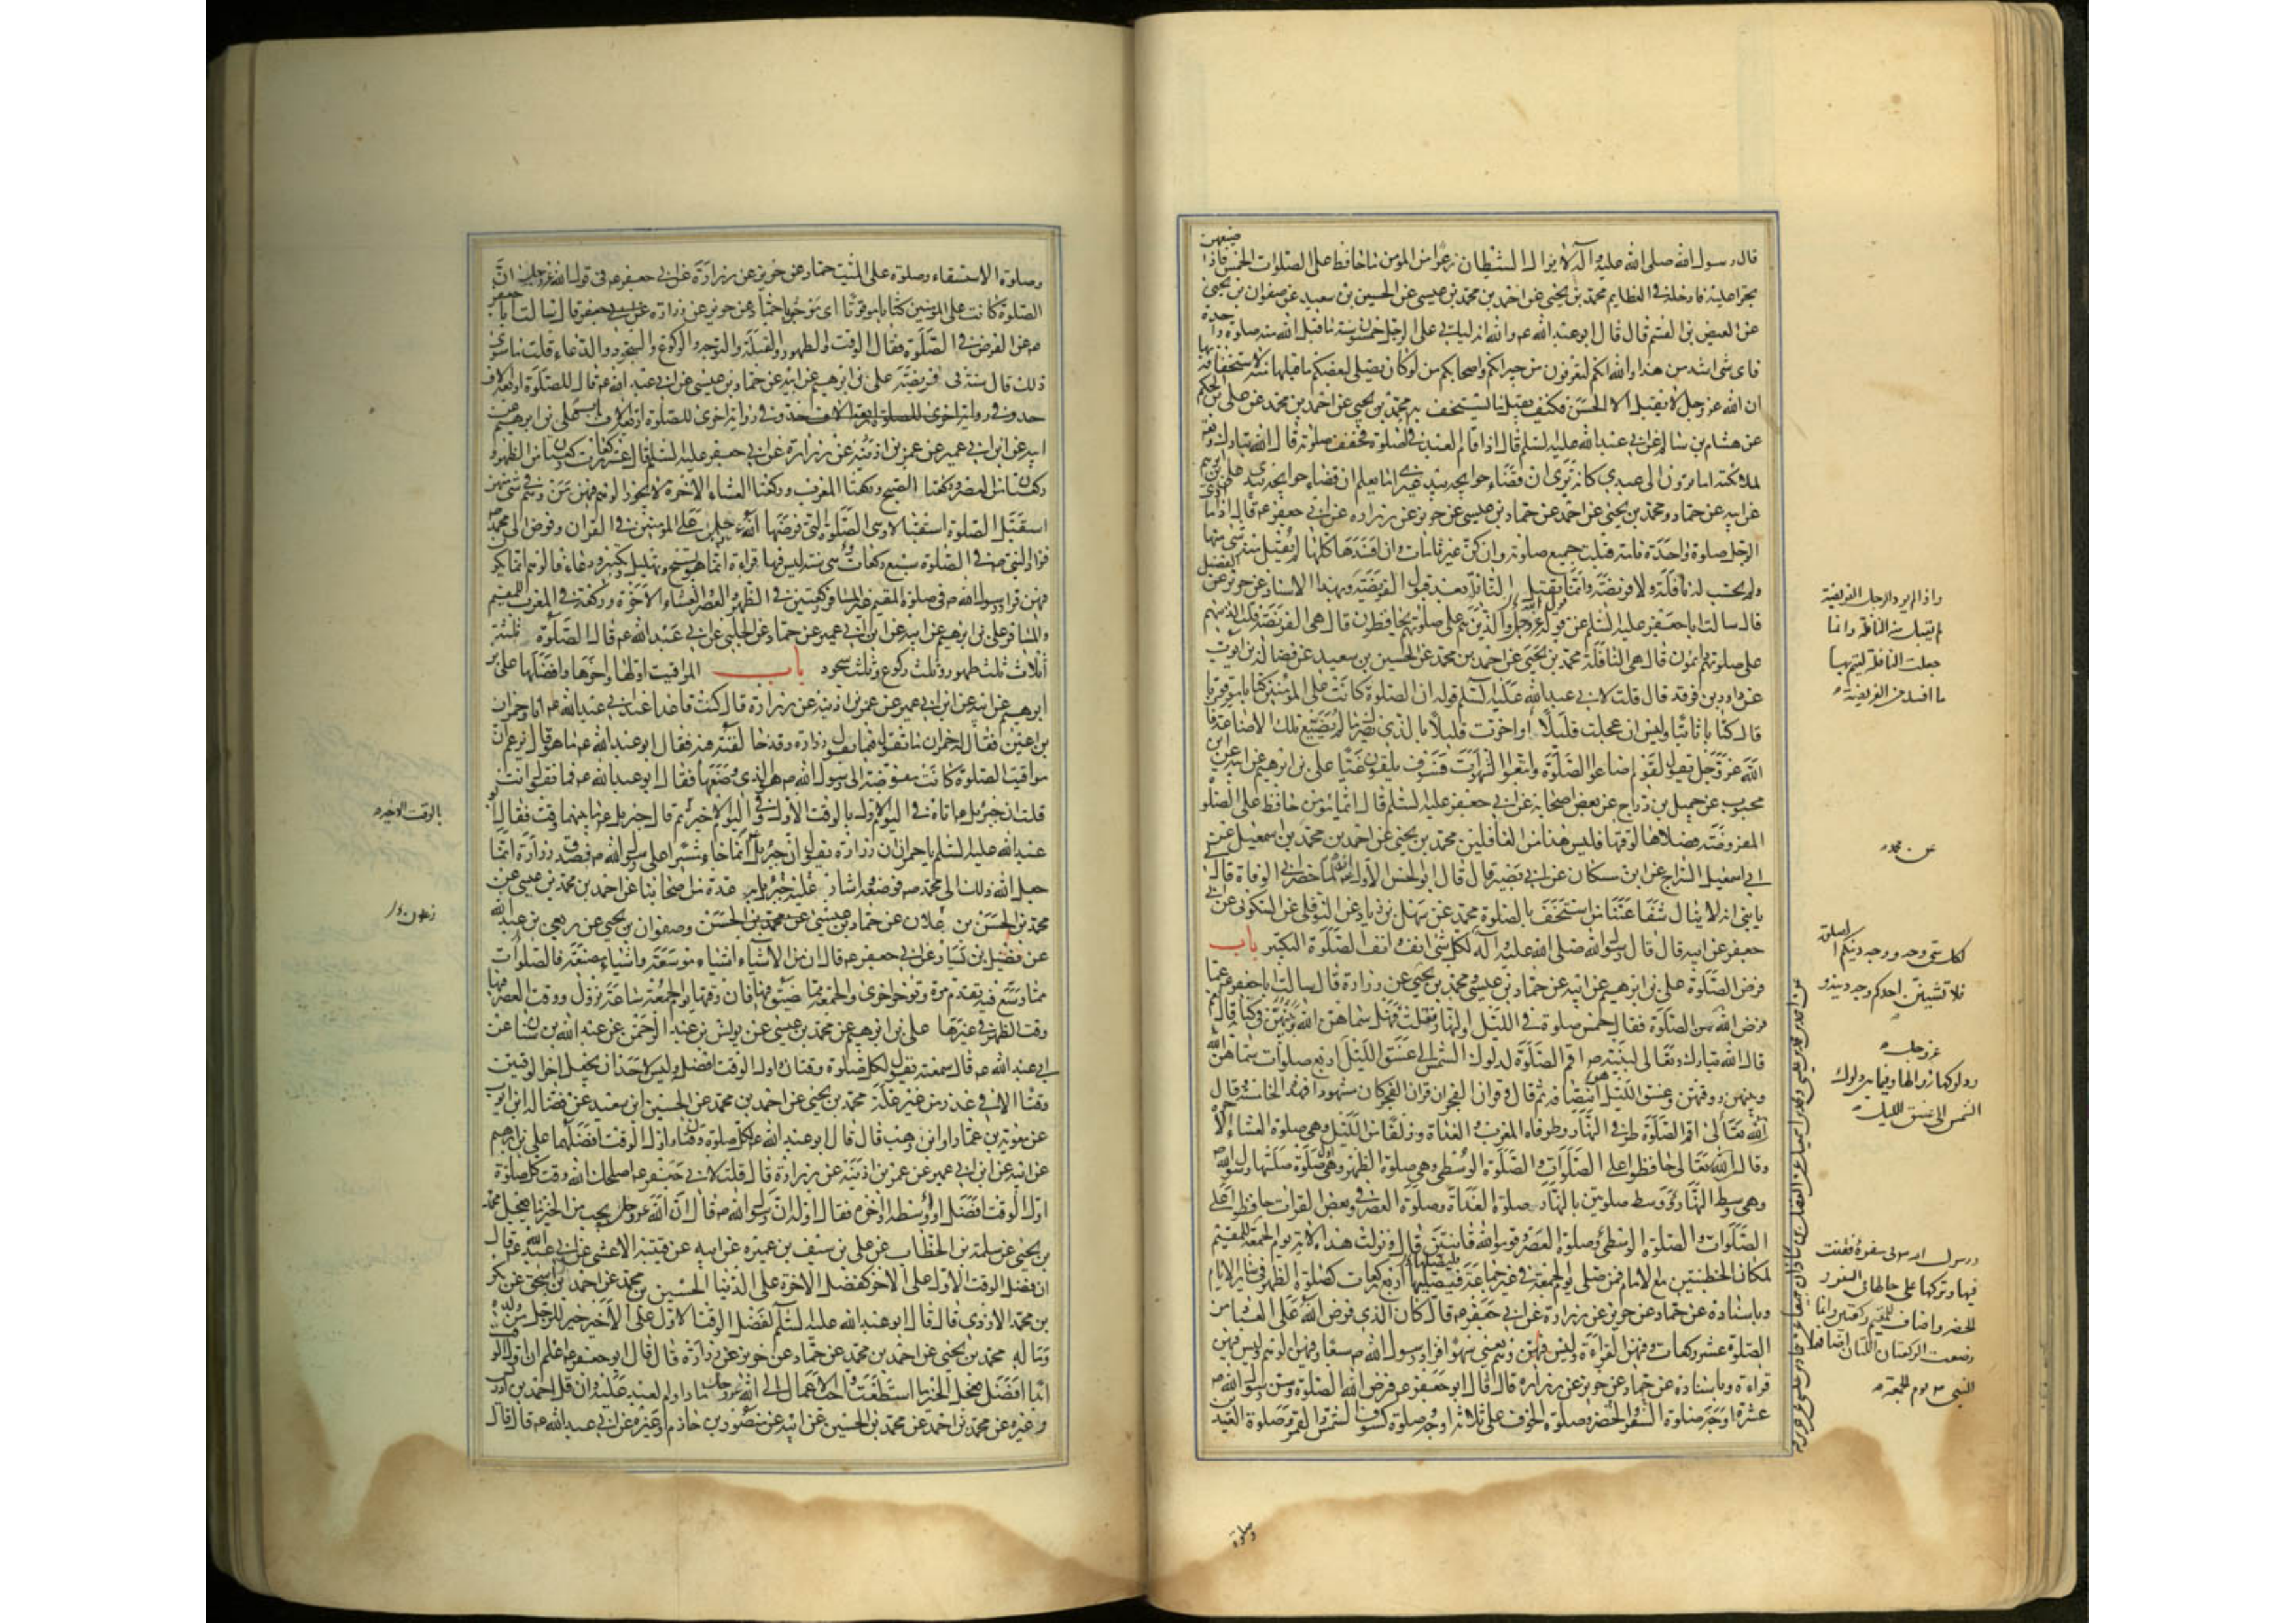 قال رسول الله صلى الله عليه وآله لا يزال الشيطان ذعرا من المؤمن ما حافظ على الصلوات الخمس فاذا ضيعهن
تجرا عليه فادخله في العظايم محمد بن يحيى عن احمد بن محمد بن عيسى عن الحسين بن سعيد عن صفوان بن يحيى
عن العيص بن القسم قال قال ابو عبد الله ع والله انه لياتي على الرجل خمسون سنة ما قبل الله منه صلوة واحدة
فاى شى اشد من هذا والله انكم لتعرفون من جيرانكم واصحابكم من لو كان يصلى لبعضكم ما قبلها منه لاستخفافه بها
ان الله عز وجل لا يقبل الا الحسن فكيف يقبل ما يستخف به محمد بن يحيى عن احمد بن محمد عن على بن الحكم
عن هشام بن سالم عن ابي عبد الله عليه السلم قال اذا قام العبد في الصلوة فخفف صلوته قال الله تبارك وتعالى
لملائكته اما ترون الى عبدي كانه يرى ان قضاء حوايجه بيد غيري اما يعلم ان قضاء حوايجه بيدي على بن ابرهيم
عن ابيه عن حماد ومحمد بن يحيى عن احمد عن حماد بن عيسى عن حريز عن زرارة عن ابي جعفر ع قال اذا ما ادى
الرجل صلوة واحدة تامة قبلت جميع صلوته وان كن غير تامات وان افسدها كلها لم يقبل منه شى منها
ولم يحتسب له نافلة ولا فريضة وانما يقبل النافلة بعد قبول الفريضة وبهذا الاسناد عن حريز عن الفضيل
قال سالت ابا جعفر عليه السلم عن قول الله عز وجل والذين هم على صلوتهم يحافظون قال هى الفريضة قلت الذين هم
على صلوتهم دائمون قال هى النافلة محمد بن يحيى عن احمد بن محمد عن الحسين بن سعيد عن فضالة بن ايوب
عن داود بن فرقد قال قلت لابي عبد الله عليه السلم قوله ان الصلوة كانت على المؤمنين كتابا موقوتا
قال كتابا ثابتا وليس ان عجلت قليلا او اخرت قليلا بالذي يضرك ما لم تضيع تلك الاضاعة فان
الله عز وجل يقول لقوم اضاعوا الصلوة واتبعوا الشهوات فسوف يلقون غيا على بن ابرهيم عن ابيه عن ابن
محبوب عن جميل بن دراج عن بعض اصحابه عن ابي جعفر عليه السلم قال ايما مؤمن حافظ على الصلوات
المفروضة فصلاها لوقتها فليس هذا من الغافلين محمد بن يحيى عن احمد بن محمد بن اسمعيل عن
ابي اسمعيل السراج عن ابن مسكان عن ابي بصير قال قال ابو الحسن الاول ع انه لما حضر ابي الوفاة قال لى
يا بني انه لا ينال شفاعتنا من استخف بالصلوة محمد عن سهل بن زياد عن النوفلى عن السكونى عن ابي
جعفر عن ابيه قال قال رسول الله صلى الله عليه وآله لكل شى انف وانف الصلوة التكبير باب
فرض الصلوة على بن ابرهيم عن ابيه عن حماد بن عيسى ومحمد بن يحيى عن زرارة قال سالت ابا جعفر ع عما
فرض الله من الصلوة فقال خمس صلوة في الليل والنهار فقلت فهل سماهن الله وبينهن في كتابه قال نعم
قال الله تبارك وتعالى لنبيه ص اقم الصلوة لدلوك الشمس الى غسق الليل اربع صلوات سماهن الله
وبينهن ووقتهن وغسق الليل هو انتصافه ثم قال وقران الفجر ان قران الفجر كان مشهودا فهذه الخامسة وقال
الله تعالى اقم الصلوة طرفي النهار وطرفاه المغرب والغداة وزلفا من الليل وهى صلوة العشاء الاخرة
وقال الله تعالى حافظوا على الصلوات والصلوة الوسطى وهى صلوة الظهر وهى اول صلوة صلتها رسول الله ص
وهى وسط النهار ووسط صلوتين بالنهار صلوة الغداة وصلوة العصر وفي بعض القراة حافظوا على
الصلوات والصلوة الوسطى وصلوة العصر وقوموا لله قانتين قال ونزلت هذه الاية يوم الجمعة للمقيم
لمكان الخطبتين مع الامام فمن صلى يوم الجمعة في غير جماعة فليصلها اربع ركعات كصلوة الظهر في سائر الايام
وباسناده عن حماد عن حريز عن زرارة عن ابي جعفر ع قال كان الذي فرض الله على العباد من
الصلوة عشر ركعات وفيهن القراءة وليس فيهن وهم يعنى سهو افزاد رسول الله ص سبعا وفيهن الوهم وليس فيهن
قراءة وباسناده عن حماد عن حريز عن زرارة قال قال ابو جعفر ع فرض الله الصلوة وسن رسول الله ص
عشرة اوجه صلوة السفر والحضر وصلوة الخوف على ثلاثة اوجه وصلوة كسوف الشمس والقمر وصلوة العيدين
صلوة
واذا لم يود الرجل الفريضة
لم يقبل منه النافلة وانما
جعلت النافلة ليتم بها
ما افسد من الفريضة
عن محمد
لكل شى وجه ووجه دينكم الصلوة
فلا تشينن احدكم وجه دينه و
عز وجل
ودلوكها زوالها وفيما بين دلوك
الشمس الى غسق الليل
ورسول الله ص في سفره فقنت
فيها وتركها على حالها في السفر و
الحضر واضاف للمقيم ركعتين وانما
وضعت الركعتان اللتان اضافهما
النبي ص يوم الجمعة
وصلوة الاستسقاء وصلوة على الميت حماد عن حريز عن زرارة عن ابي جعفر ع في قول الله عز وجل ان
الصلوة كانت على المؤمنين كتابا موقوتا اى موجوبا حماد عن حريز عن زرارة قال سالت ابا جعفر
ع عن الفرض في الصلوة فقال الوقت والطهور والقبلة والتوجه والركوع والسجود والدعاء قلت ما سوى
ذلك قال سنة في فريضة على بن ابرهيم عن ابيه عن حماد بن عيسى عن ابي عبد الله ع قال للصلوة اربعة الاف
حد وفي رواية اخرى للصلوة اربعة الاف باب على بن ابرهيم عن
ابيه عن ابن ابي عمير عن عمر بن اذينة عن زرارة عن ابي جعفر عليه السلم قال عشر ركعات ركعتان من الظهر و
ركعتان من العصر وركعتا الصبح وركعتا المغرب وركعتا العشاء الاخرة لا يجوز الوهم فيهن من وهم في شى منهن
استقبل الصلوة استقبالا وهى الصلوة التى فرضها الله عز وجل على المؤمنين في القران وفوض الى محمد ص
فزاد النبي ص في الصلوة سبع ركعات هى سنة ليس فيها قراءة انما هو تسبيح وتهليل وتكبير ودعاء فالوهم انما يكون
فيهن فزاد رسول الله ص في صلوة المقيم غير المسافر ركعتين في الظهر والعصر والعشاء الاخرة وركعة في المغرب للمقيم
والمسافر على بن ابرهيم عن ابيه عن ابن ابي عمير عن حماد عن الحلبى عن ابي عبد الله ع قال الصلوة ثلثة
اثلاث ثلث طهور وثلث ركوع وثلث سجود باب المواقيت اولها واخرها وافضلها على بن
ابرهيم عن ابيه عن ابن ابي عمير عن عمر بن اذينة عن زرارة قال كنت قاعدا عند ابي عبد الله ع انا وحمران
بن اعين فقال له حمران ما تقول فيما يقول زرارة وقد خالفته فيه فقال ابو عبد الله ع ما هو قال يزعم ان
مواقيت الصلوة كانت مفوضة الى رسول الله ص هو الذي وضعها فقال ابو عبد الله ع فما تقول انت
قلت ان جبريل ع اتاه في اليوم الاول بالوقت الاول وفي اليوم الاخير ثم قال جبريل ع ما بينهما وقت فقال ابو
عبد الله عليه السلم يا حمران ان زرارة يقول ان جبريل انما جاء مشيرا على رسول الله ص فصدق زرارة انما
جعل الله ذلك الى محمد ص فوضعه واشار عليه جبريل به عدة من اصحابنا عن احمد بن محمد بن عيسى عن
محمد بن الحسن بن علان عن حماد بن عيسى عن محمد بن الحسن وصفوان بن يحيى عن ربعى بن عبد الله
عن فضيل بن يسار عن ابي جعفر ع قال ان من الاشياء اشياء موسعة واشياء مضيقة فالصلوات
مما وسع فيه تقدم مرة وتؤخر اخرى والجمعة مما ضيق فيها فان وقتها يوم الجمعة ساعة تزول ووقت العصر فيها
وقت الظهر في غيرها على بن ابرهيم عن محمد بن عيسى عن يونس بن عبد الرحمن عن عبد الله بن سنان عن
ابي عبد الله ع قال سمعته يقول لكل صلوة وقتان واول الوقت افضل وليس لاحد ان يجعل اخر الوقتين
وقتا الا في عذر من غير علة محمد بن يحيى عن احمد بن محمد عن الحسين ابن سعيد عن فضالة ابن ايوب
عن معوية بن عمار او ابن وهب قال قال ابو عبد الله ع لكل صلوة وقتان واول الوقت افضلهما على بن ابرهيم
عن ابيه عن ابن ابي عمير عن عمر بن اذينة عن زرارة قال قلت لابي جعفر ع اصلحك الله وقت كل صلوة
اول الوقت افضل او وسطه او اخره فقال اوله ان رسول الله ص قال ان الله عز وجل يحب من الخير ما يعجل محمد
بن يحيى عن سلمة بن الخطاب عن على بن سيف بن عميرة عن ابيه عن قتيبة الاعشى عن ابي عبد الله ع قال
ان فضل الوقت الاول على الاخر كفضل الاخرة على الدنيا الحسين بن محمد عن احمد بن اسحق عن بكر
بن محمد الازدى قال قال ابو عبد الله عليه السلم لفضل الوقت الاول على الاخير خير للرجل من ولده
وماله محمد بن يحيى عن احمد بن محمد عن حماد عن حريز عن زرارة قال قال ابو جعفر ع اعلم ان اول الوقت
ابدا افضل فعجل الخير ما استطعت واحب الاعمال الى الله عز وجل ما داوم العبد عليه وان قل احمد بن ادريس
وغيره عن محمد بن احمد عن محمد بن الحسين عن ابيه عن منصور بن حازم او غيره عن ابي عبد الله ع قال قال
بالوقت الاخير